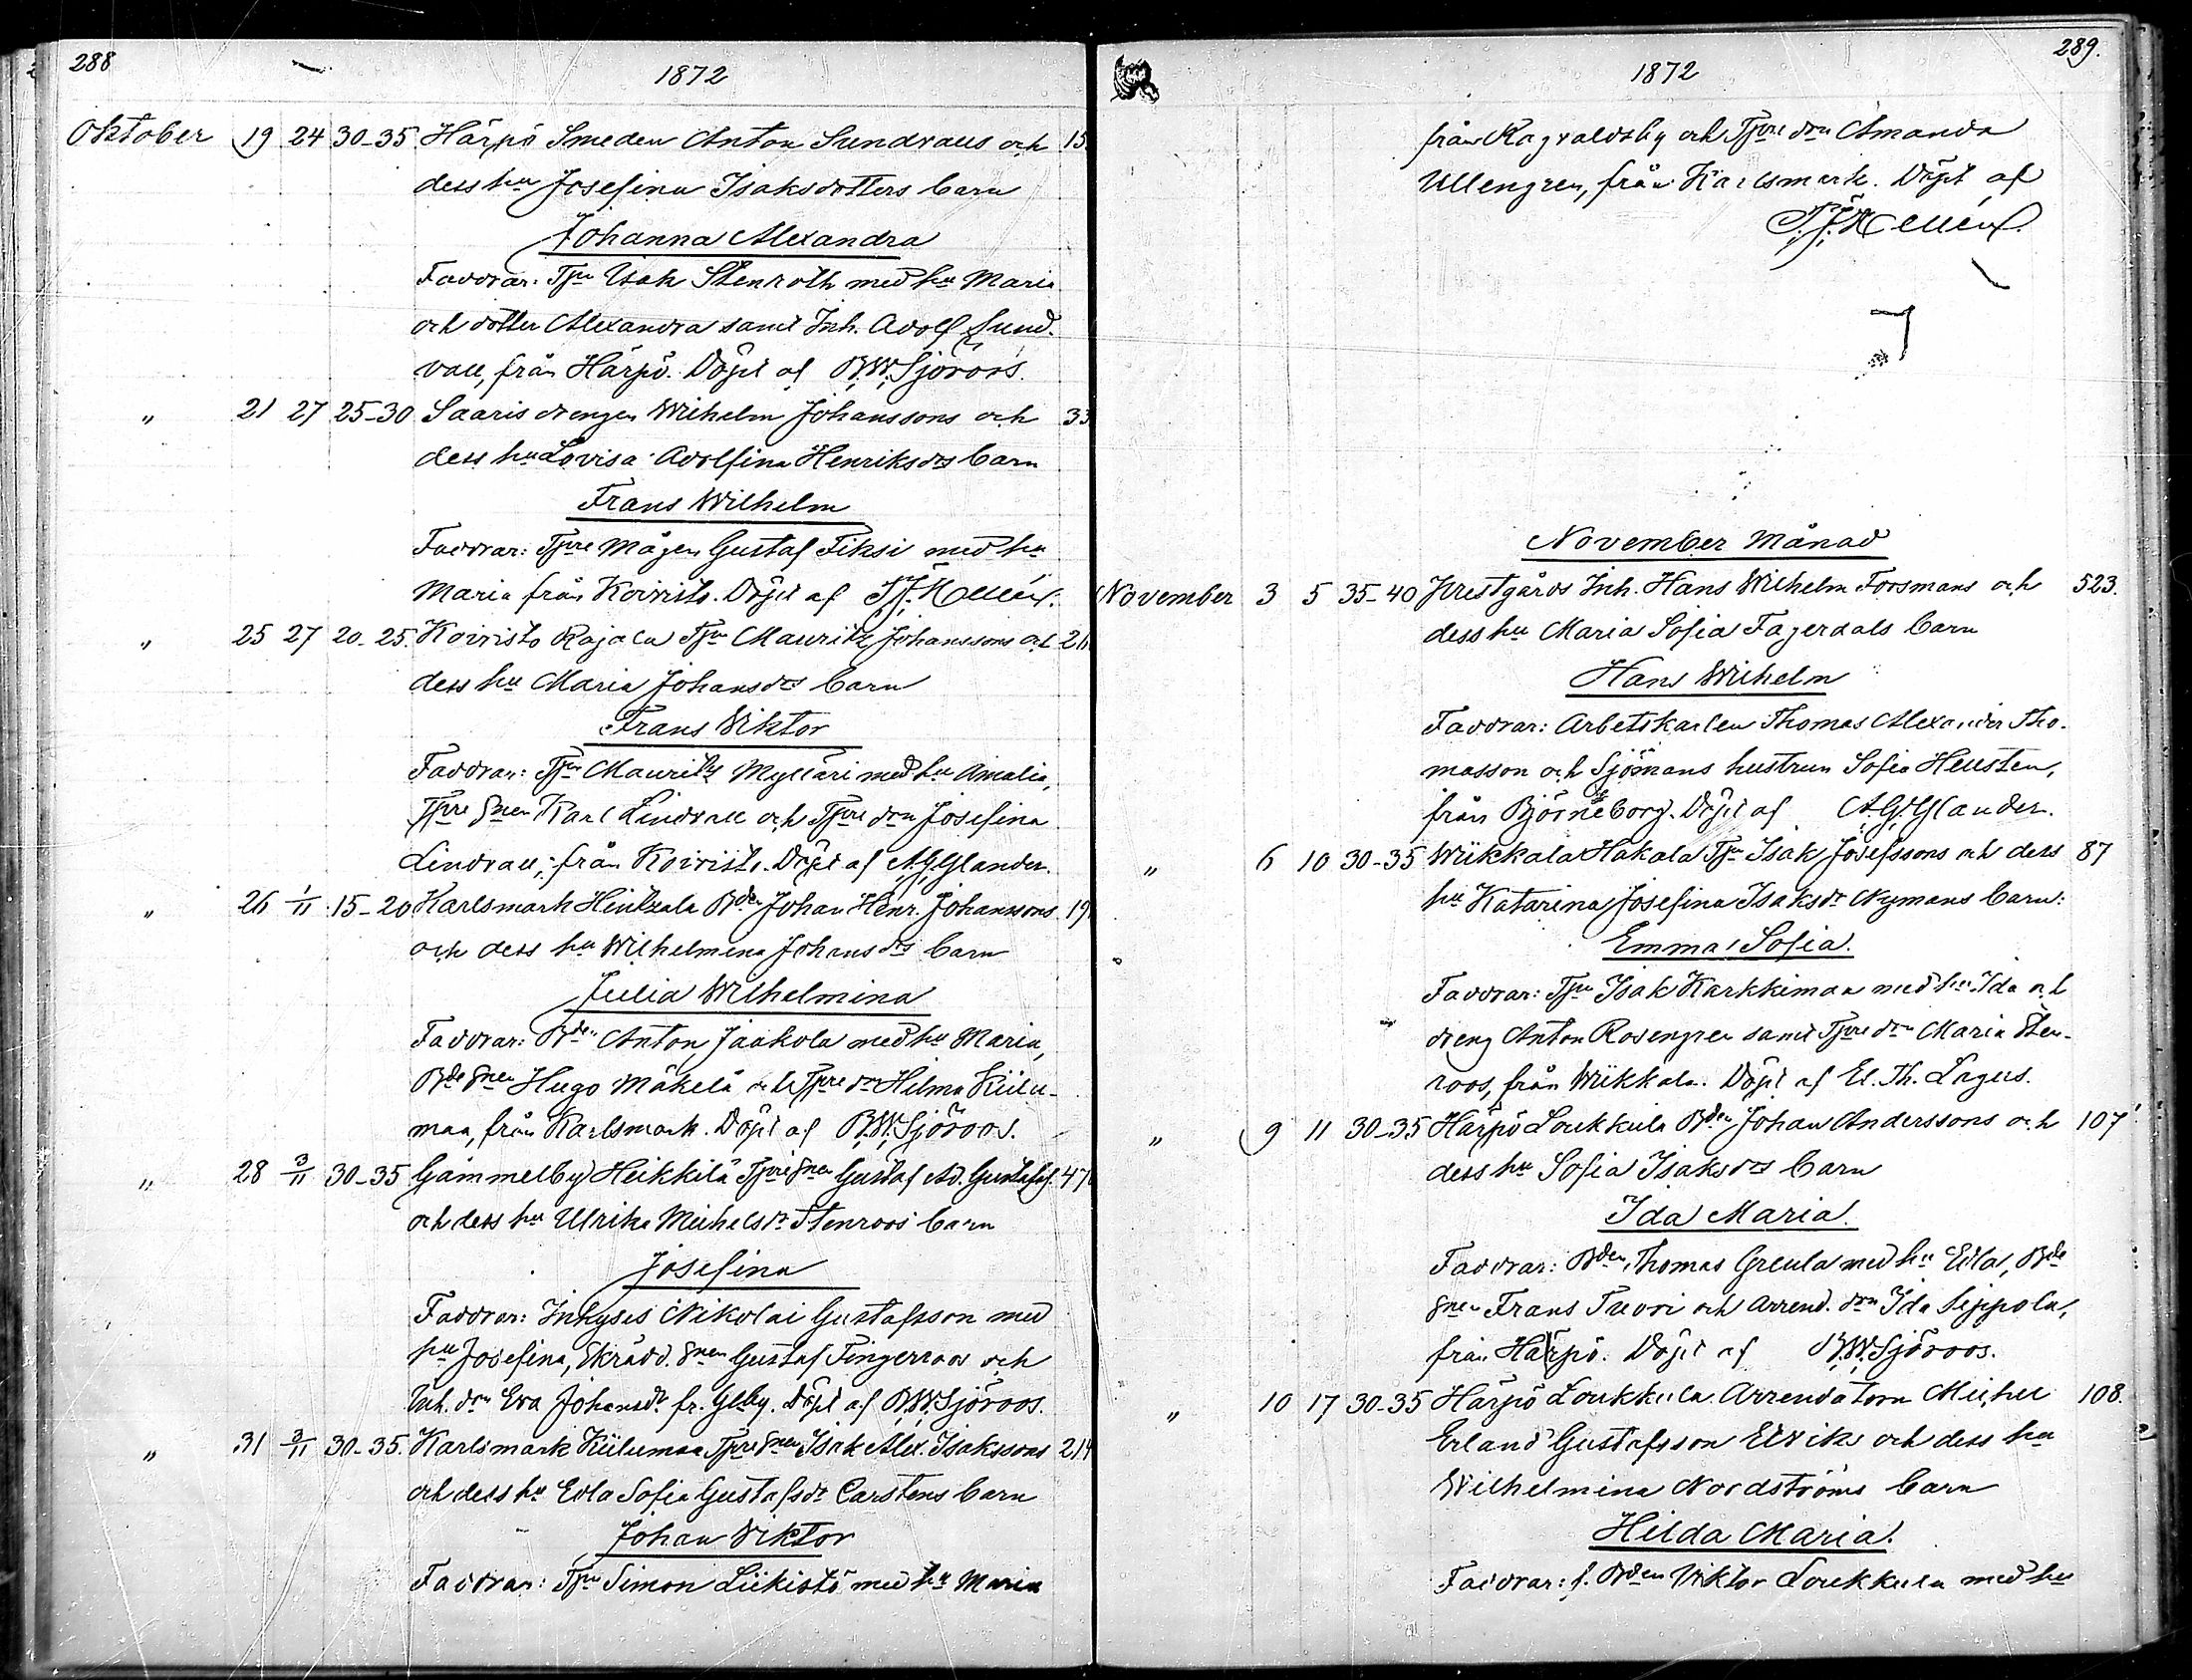 288
1872
Oktober 19 24 30-35 Härpö Smeden Anton Sundvaus och 15
dess hu Josefina Isaksdotters barn
Johanna Alexandra
Faddrar: Tpu Isak Stenroth med hu Maria
och dotter Alexandra samt Inh. Adolf Sund-
vall, från Härpö. Döpt af B.W. Sjöroos.
" 21 27 25-30 Saaris drengen Wilhelm Johanssons och 33
dess hu Lovisa Adolfina Henriksdrs barn
Frans Wilhelm
Faddrar: Tpre Mågen Gustaf Fiksi med hu
Maria från Koivisto. Döpt af
" 25 27 20-25. Koivisto Rajala Tpu Mauritz Johanssons och
dess hu Maria Johansdrs barn
Frans Viktor
Faddrar: Tpu Mauritz Mylläri med hu Amalia,
Tpre snen Karl Lindvall och Tpre drn Josefina
Lindvall; från Koivisto. Döpt af A.G. Glander.
" 26 1/11 15-20 Karlsmark Heinkzala Bden Johan Henr. Johanssons 19
och dess hu Wilhelmina Johansdrs barn
Julia Wilhelmina
Faddrar: Bden Anton Jaakola med hu Maria,
Bde snen Hugo Mäkelä och Tpre dr Hilma Kiilu-
maa, från Karlsmark. Döpt af B.W. Sjöroos.
" 28 3/11 30-35 Gammelby Heikkilä Tpre snen Gustaf Ad. Gustafss. 47
och dess hu Ulrika Michelsdr Stenroos barn
Josefina
Faddrar: Inhyses Nikolai Gustafsson med
hu Josefina, Skrädd. snen Gustaf Fingerroos och
Inh. drn Eva Johansdr fr. Glby. Döpt af B.W. Sjöroos.
" 31 3/11 30-35. Karlsmark Kiilumaa Tpre snen Isak Alex. Isakssons 214
och dess hu Edla Sofia Gustafsdr Carstens barn
Johan Viktor
Faddrar: Tpu Simon Liikistö med hu Maria
289.
1872
från Ragvaldsby och Tpre drn Amanda
Ullengren, från Karlsmark. Döpt af
November Månad
November 3 5 35-40 Prestgårds Inh. Hans Wilhelm Forsmans och 523.
dess hu Maria Sofia Fagerdals barn
Hans Wilhelm
Faddrar: Arbetskarlen Thomas Alexander Tho-
masson och Sjömans hustrun Sofia Heusten,
från Björneborg. Döpt af A.G. Glander.
" 6 10 30-35 Wiikkala Hakala Tpu Isak Josefssons och dess 87
hu Katarina Josefina Isaksdr Nymans barn:
Emma Sofia.
Faddrar: Tpu Isak Karkkimaa med hu Ida och
dreng Anton Rosengren samt Tpre drn Maria Sten-
roos, från Wiikkala. Döpt af El. Th. Lagus.
" 9 11 30-35 Härpö Loukkula Bden Johan Anderssons och 107
dess hu Sofia Isaksdrs barn
Ida Maria.
Faddrar: Bden Thomas Greula med hu Edla, Bde
snen Frans Tuori och Arrend. drn Ida Seppola,
från Härpö. Döpt af B.W. Sjöroos.
" 10 17 30-35 Härpö Loukkula Arrendatorn Michel 108.
Erland Gustafsson Elviks och dess hu
Wilhelmina Nordströms barn
Hilda Maria.
Faddrar: f. Bden Viktor Loukkula med hu